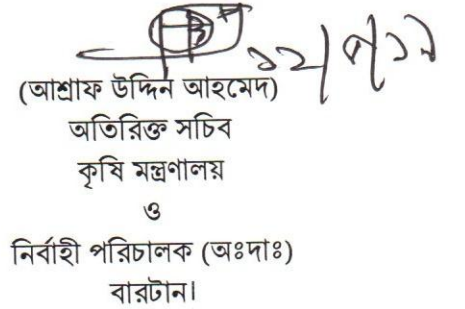 (আশ্রাফ উদ্দিন আহমেদ)
অতিরিক্ত সচিব
কৃষি মন্ত্রণালয়
ও
নির্বাহী পরিচালক (অঃদাঃ)
বারটান।